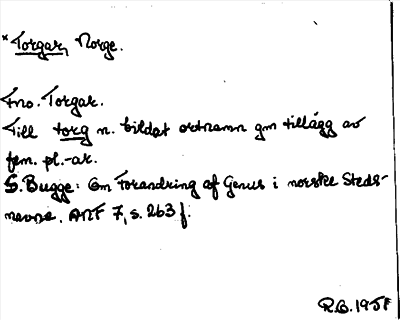 *Torgar, Norge.
Fno. Torgar.
Till torg n. bildat ortnamn gm tillägg av
fem. pl. -ar.
S. Bugge: Om Forandring af Genus i norske Steds-
navne. ANF 7, s. 263 f.
R.G. 1951